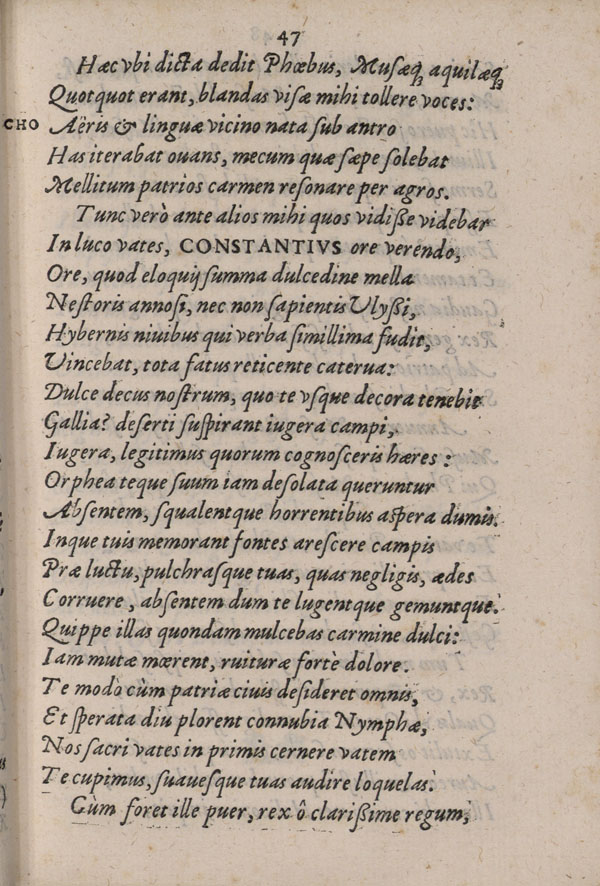 47
Hæc vbi dicta dedit Phœbus, Musæq; aquilæq;
Quotquot erant, blandas visæ mihi tollere voces:
CHO Aëris & linguæ vicino nata sub antro
Has iterabat ouans, mecum quæ sæpe solebat
Mellitum patrios carmen resonare per agros.
Tunc verò ante alios mihi quos vidiſſe videbar
In luco vates, CONSTANTIVS ore verendo,
Ore, quod eloquij summa dulcedine mella
Nestoris annosi, nec non sapientis Ulyßi,
Hybernis niuibus qui verba simillima fudit,
Vincebat, tota fatus reticente caterua:
Dulce decus nostrum, quo te vsque decora tenebit
Gallia? deserti suspirant iugera campi,
Iugera, legitimus quorum cognosceris hæres:
Orphea teque suum iam desolata queruntur
Absentem, squalentque horrentibus aspera dumis.
Inque tuis memorant fontes arescere campis
Præ luctu, pulchrasque tuas, quas negligis, ædes
Corruere, absentem dum te lugentque gemuntque.
Quippe illas quondam mulcebas carmine dulci:
Iam mutæ mœrent, ruituræ fortè dolore.
Te modò cùm patriæ ciuis desideret omnis,
Et sperata diu plorent connubia Nymphæ,
Nos sacri vates in primis cernere vatem
Te cupimus, suauesque tuas audire loquelas.
Cùm foret ille puer, rex ô clarißime regum,